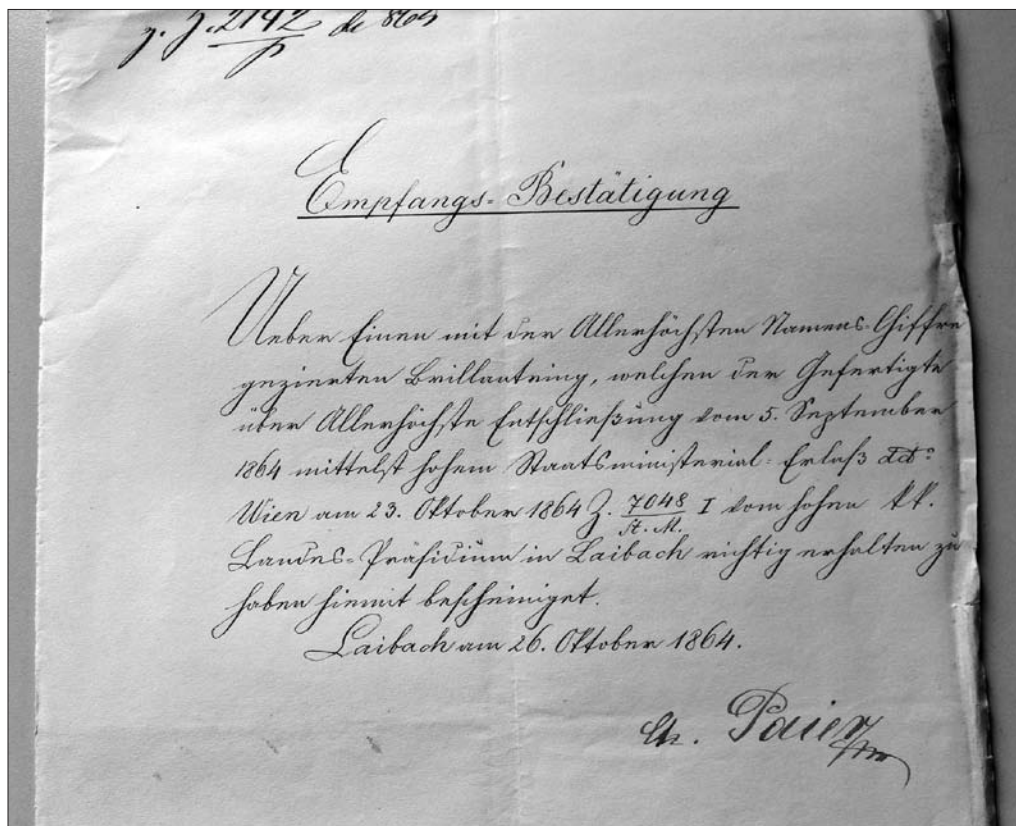 z. Z. 2142/P de 864
Empfangs-Bestätigung
Ueber Einen mit der Allerhöchsten Namens-Chiffre
gezierten Brillantring, welchen der Gefertigte
über Allerhöchste Entschließung vom 5. September
1864 mittelst hohem Staatsministerial-Erlaß ddo
Wien am 23. Oktober 1864 Z. 7048/St. M. I vom hohen k.k.
Landes-Präsidium in Laibach richtig erhalten zu
haben hiemit bescheiniget.
Laibach am 26. Oktober 1864.
Ch. Paier